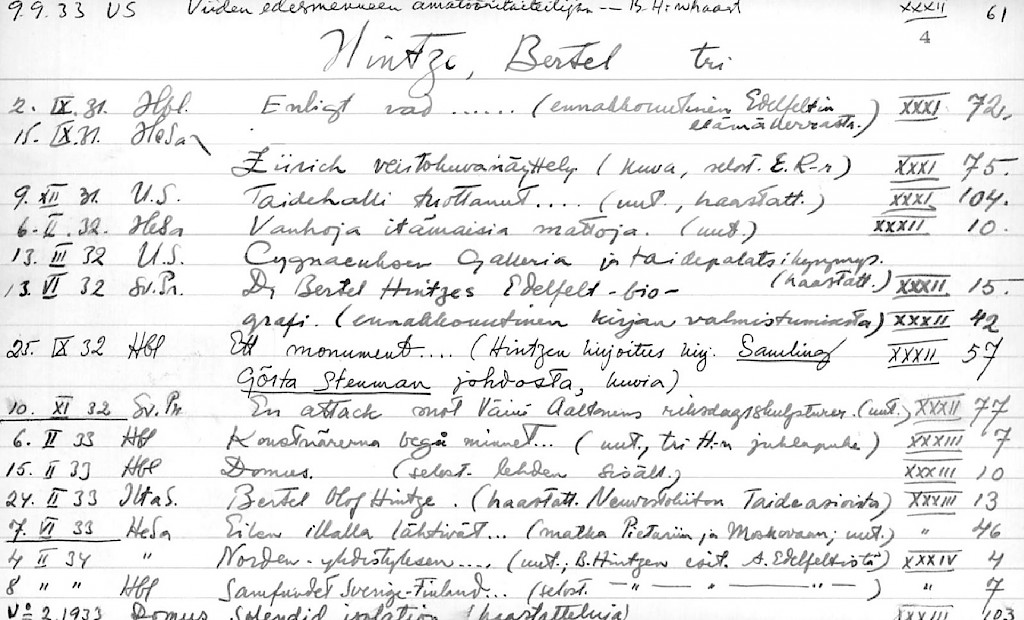 9.9.33 US Viiden edesmenneen amatööritaiteilijan -- B.H:n haast XXXII 61
4
Hintze, Bertel tri
2. IX.31. Hbl. Enligt vad ...... (ennakkouutinen Edelfeltin XXXI 72.
15. IX.31. HeSa elämäkerrasta.)
Zürich veistokuvanäyttely (kuva, selost. E.R-r) XXXI 75.
9. XII 31. U.S. Taidehalli tuottanut.... (uut., haastatt.) XXXI 104.
6. II. 32. HeSa Vanhoja itämaisia mattoja. (uut.) XXXII 10.
13. III 32 U.S. Cygnaeuksen Galleria ja taidepalatsikysymys.
13. VI 32 Sv.Pr. Dr Bertel Hintzes Edelfelt-bio- (haastatt.) XXXII 15.
grafi. (ennakkouutinen kirjan valmistumisesta) XXXII 42
25. IX 32 Hbl Ett monument.... (Hintzen kirjoitus kirj. Samling XXXII 57
Gösta Stenman johdosta, kuvia)
10. XI 32 Sv.Pr. En attack mot Väinö Aaltonens riksdagsskulpturer. (uut.) XXXII 77
6. II 33 Hbl Konstnärerna begå minnet... (uut., tri H:n juhlapuhe) XXXIII 7
15. II 33 Hbl Domus. (selost. lehden sisält.) XXXIII 10
24. II 33 IltaS. Bertel Olof Hintze. (haastatt. Neuvostoliiton Taideasioista) XXXIII 13
7. VI 33 HeSa Eilen illalla lähtivät... (matka Pietariin ja Moskovaan; uut.) " 46
4 II 34 " Norden-yhdistyksen.... (uut.; B.Hintzen esit. A.Edelfeltistä) XXXIV 4
8 " " Hbl Samfundet Sverige-Finland... (selost. — " — " — " —) " 7
No 2.1933 Domus Splendid isolation (haastatteluja) XXXIII 103